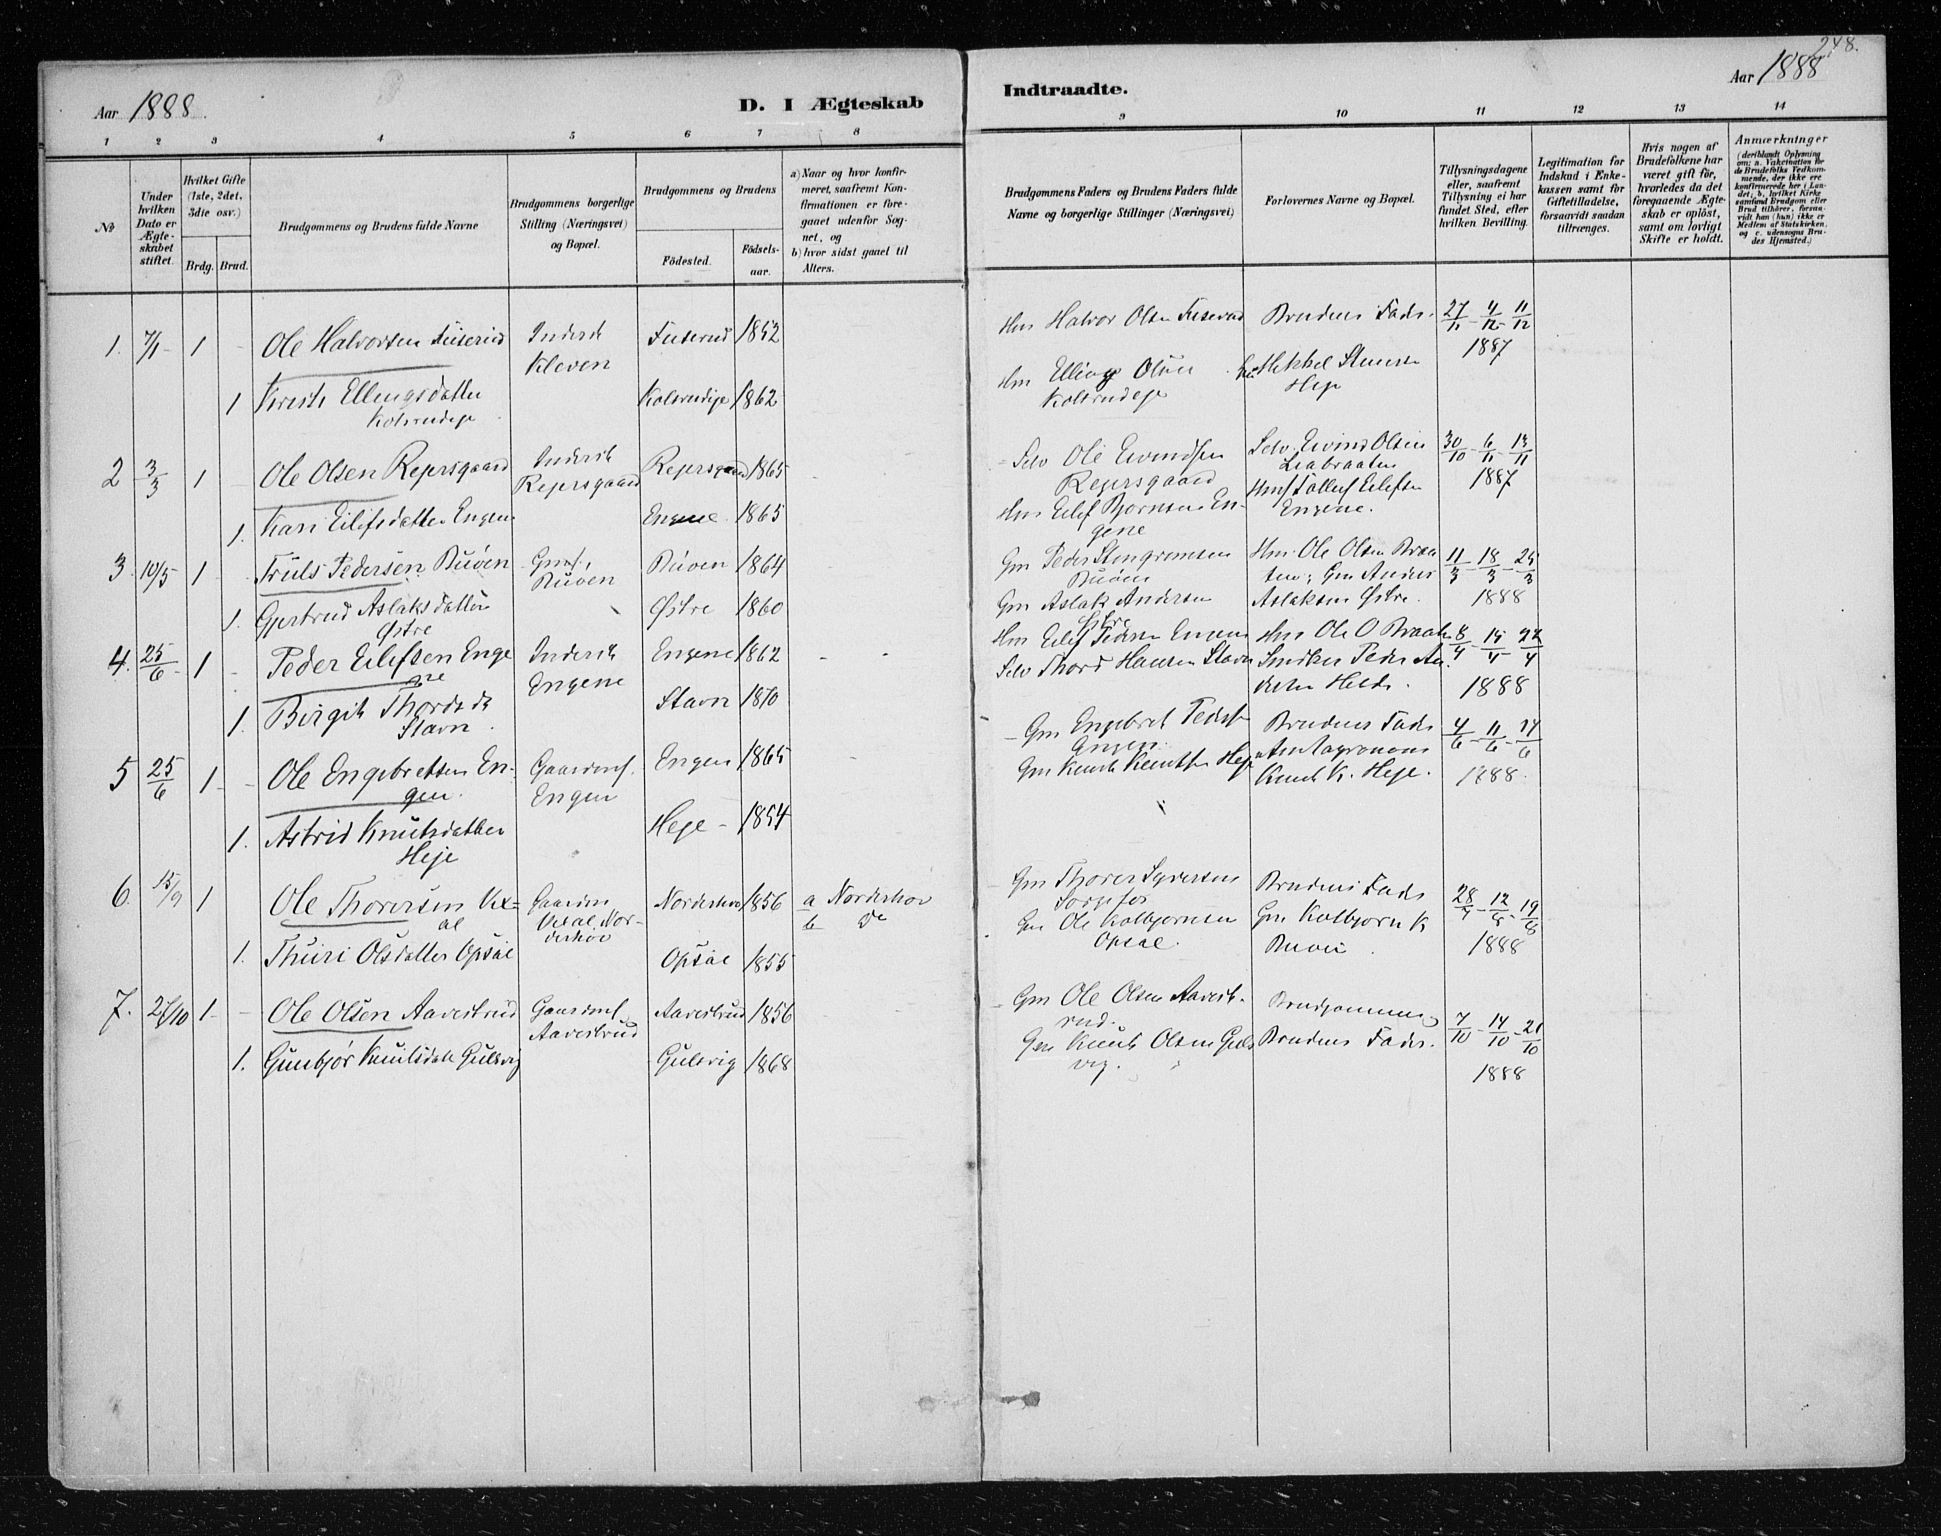 248.
Aar 1888.
D. I Ægteskab
Indtraadte.
Aar 1888
1 2 3 4 5 6 7 8
9 10 11 12 13 14
№
Under hvilken Dato er Ægteskabet stiftet.
Hvilket Gifte (1ste, 2det, 3die osv.)
Brdg. Brud.
Brudgommens og Brudens fulde Navne
Brudgommens borgerlige Stilling (Næringsvei) og Bopæl.
Brudgommens og Brudens
Födested.
Födsels-aar.
a) Naar og hvor konfirmeret, saafremt Konfirmationen er foregaaet udenfor Sognet, og
b) hvor sidst gaaet til Alters.
Brudgommens Faders og Brudens Faders fulde Navne og borgerlige Stillinger (Næringsvei)
Forlovernes Navne og Bopæl.
Tillysningsdagene eller, saafremt Tillysning ei har fundet Sted, efter hvilken Bevilling.
Legitimation for Indskud i Enkekassen samt for Giftetilladelse, forsaavidt saadan tiltrænges.
Hvis nogen af Brudefolkene har været gift før, hvorledes da det foregaaende Ægteskab er oplöst, samt om lovligt Skifte er holdt.
Anmærkninger
(deriblandt Oplysning om; a. Vakcination for de Brudefolks Vedkommende, der ikke ere konfirmerede her i Landet; b. hvilket Kirkesamfund Brudgom eller Brud tilhörer, forsaavidt han (hun) ikke er Medlem af Statskirken, og c. udensogns Brudes Hjemsted.)
1. 7/1 - 1 - Ole Halvorsen Fuserud Inderst Kleven Fuserud 1852 Hm Halvor Olsen Fuserud Brudens Fader. 27/11 - 4/12 - 11/12 1887
1 Kirsti Ellingsdatter Kolsrudeje Kolsrudeje 1862 Hm Elling Olsen Kolsrudeje Heje
2 3/3 1 - Ole Olsen Rejersgaard Inderst Rejersgaard Rejersgaard 1865 Selv Ole Eivindsen Rejersgaard Selv. Eivind Olsen Liabraaten 30/10 - 6/11 - 13/11 1887
1. Kari Eilifsdatter Engene Engene 1865 Hm Eilef Bjornsen Engene Eilefsen Engene.
3. 10/5 1 - Truls Pedersen Buöen Gmf. Buöen Buöen 1864 Gm Peder Stengrimsen Buöen Hm Ole Olsen Braaten; Gm Anders Aslaksen Østre. 11/3 - 18/3 - 25/3 1888
1. Gjertrud Aslaksdatter Østre Østre 1860 Gm Aslak Andersen Østre
4. 25/6 - 1 - Peder Eilefsen Engene Inderst Engene Engene 1862 - - Hm Eilef Pedersen Engene Hm Ole O Braaten 8/4 - 15/4 - 22/4 1888
1. Birgit Thordsd. Stavn Stavn 1870 Selv Thord Hansen Stavn Smdker Peder
5 25/6 1 - Ole Engebretsen Engen. Gaardmf. Engen Engen 1865 - Gm Engebret Pedersen Engen Brudens Fader 4/6 - 11/6 - 17/6 1888.
1. Astrid Knutsdatter Heje Heje - 1854 Gm Knut Knutsen Heje Amtagronom Knut K. Heje.
6. 15/9 1 Ole Thoresen Vexal Gaardm Vexal, Norderhov Norderhov 1856 a Norderhov b Do Gm Thorer Syversen Brudens Fader 28/7 - 12/8 - 19/8 1888
1. Thuri Olsdatter Opsal Opsal 1855 Gm Ole Kolbjørnsen Opsal. Gm Kolbjørn K Buöen
7. 27/10 1 - Ole Olsen Aavestrud Gaardmf Aavestrud Aavestrud 1856 Gm Ole Olsen Aavestrud. Brudgommens og Brudens Fader. 7/10 - 14/10 - 21/10 1888
1. Gunbjör Knutsdatt Gulsvig Gulsvig 1868 Gm Knut Olsen Gulsvig.